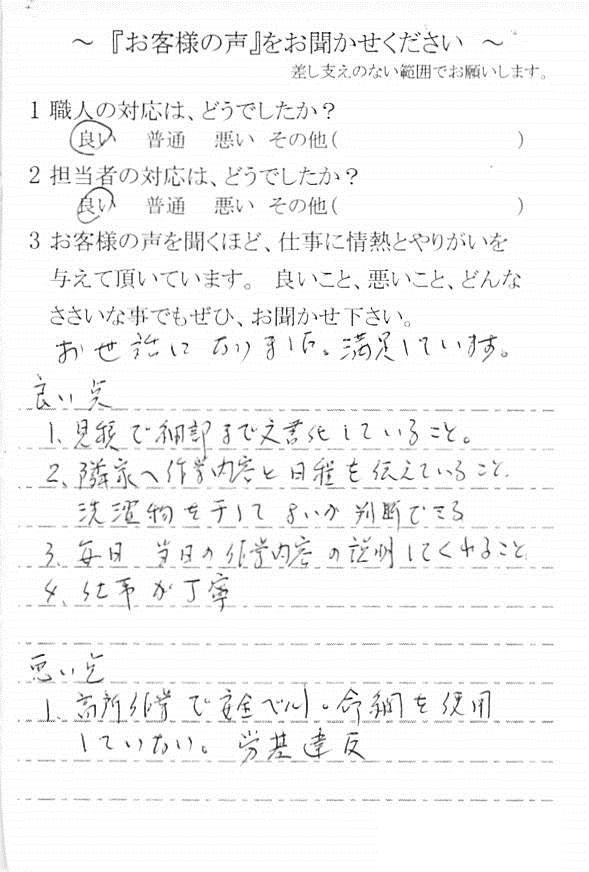 ～ 『お客様の声』をお聞かせください ～
差し支えのない範囲でお願いします。
1 職人の対応は、どうでしたか？
良い 普通 悪い その他( )
2 担当者の対応は、どうでしたか？
良い 普通 悪い その他( )
3 お客様の声を聞くほど、仕事に情熱とやりがいを
与えて頂いています。 良いこと、悪いこと、どんな
ささいな事でもぜひ、お聞かせ下さい。
お世話になりました。満足しています。
良い点
1、見積で細部まで文書化していること。
2、隣家へ作業内容と日程を伝えていること、
洗濯物を干してよいか判断できる
3、毎日 当日の作業内容の説明してくれること
4、仕事が丁寧
悪い点
1、高所作業で安全ベルト・命綱を使用
していない。労基違反